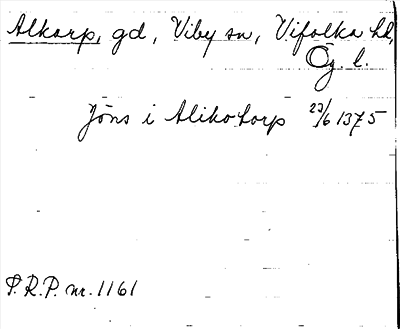 Alkarp, gd, Viby sn, Vifolka hd,
Ög. l.
Jöns i Alikotorp 23/6 1375
P.R.P. nr. 1161